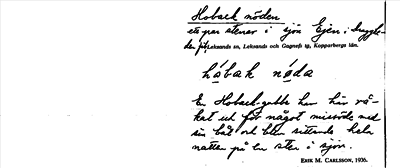 Hoback nöden
ett par stenar i sjön Ejen i Snuggbo-
den på Leksands sn, Leksands och Gagnefs tg, Kopparbergs län.
håbak nøda
En Hobacksgubbe har här rå-
kat ut för något missöde med
sin båt och blev sittande hela
natten på en sten i sjön.
ERIK M. CARLSSON, 1936.